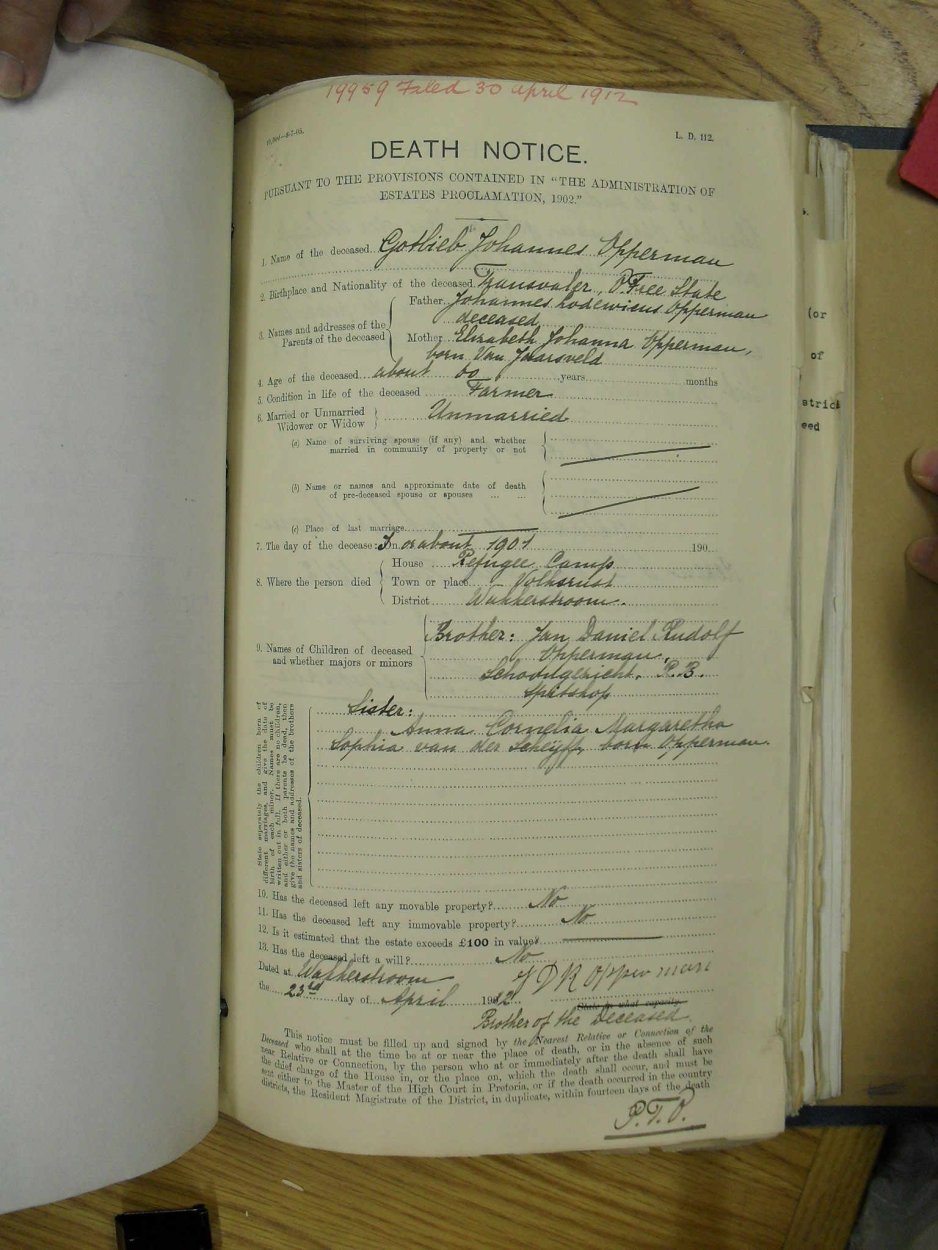 19959 Filed 30 april 1912
L. D. 112.
DEATH NOTICE.
PURSUANT TO THE PROVISIONS CONTAINED IN "THE ADMINISTRATION OF
ESTATES PROCLAMATION, 1902."
1. Name of the deceased Gotlieb Johannes Opperman
2. Birthplace and Nationality of the deceased Transvaler, O Free State
3. Names and addresses of the Parents of the deceased
Father Johannes Lodewicus Opperman
deceased
Mother Elizabeth Johanna Opperman,
born Van Jaarsveld
4. Age of the deceased about 60 years months
5. Condition in life of the deceased Farmer
6. Married or Unmarried Widower or Widow Unmarried
(a) Name of surviving spouse (if any) and whether
married in community of property or not
(b) Name or names and approximate date of death
of pre-deceased spouse or spouses ... ...
(c) Place of last marriage
7. The day of the decease: In or about 1901 190
8. Where the person died
House Refugee Camp
Town or place Volksrust
District Wakkerstroom.
9. Names of Children of deceased
and whether majors or minors
Brother: Jan Daniel Rudolf
Opperman,
R.B.
Spitskop
State separately the children born of
different marriages, and give the date of
birth of each minor. Names must be
written out in full. If there are no children,
and either or both parents be dead, then
give the names and addresses of the brothers
and sisters of deceased.
Sister:
Anna Cornelia Margaretha
Sophia van der Scheyff, born Opperman.
10. Has the deceased left any movable property? No
11. Has the deceased left any immovable property? No
12. Is it estimated that the estate exceeds £100 in value?
13. Has the deceased left a will? No
Dated at Wakkerstroom
J D R Opperman
the 23rd day of April 1912
State in what capacity.
Brother of the Deceased
This notice must be filled up and signed by the Nearest Relative or Connection of the
Deceased who shall at the time be at or near the place of death, or in the absence of such
near Relative or Connection, by the person who at or immediately after the death shall have
the chief charge of the House in, or the place on, which the death shall occur, and must be
sent either to the Master of the High Court in Pretoria, or if the death occurred in the country
districts, the Resident Magistrate of the District, in duplicate, within fourteen days of the death
P.T.O.
(or
of
strict
eed